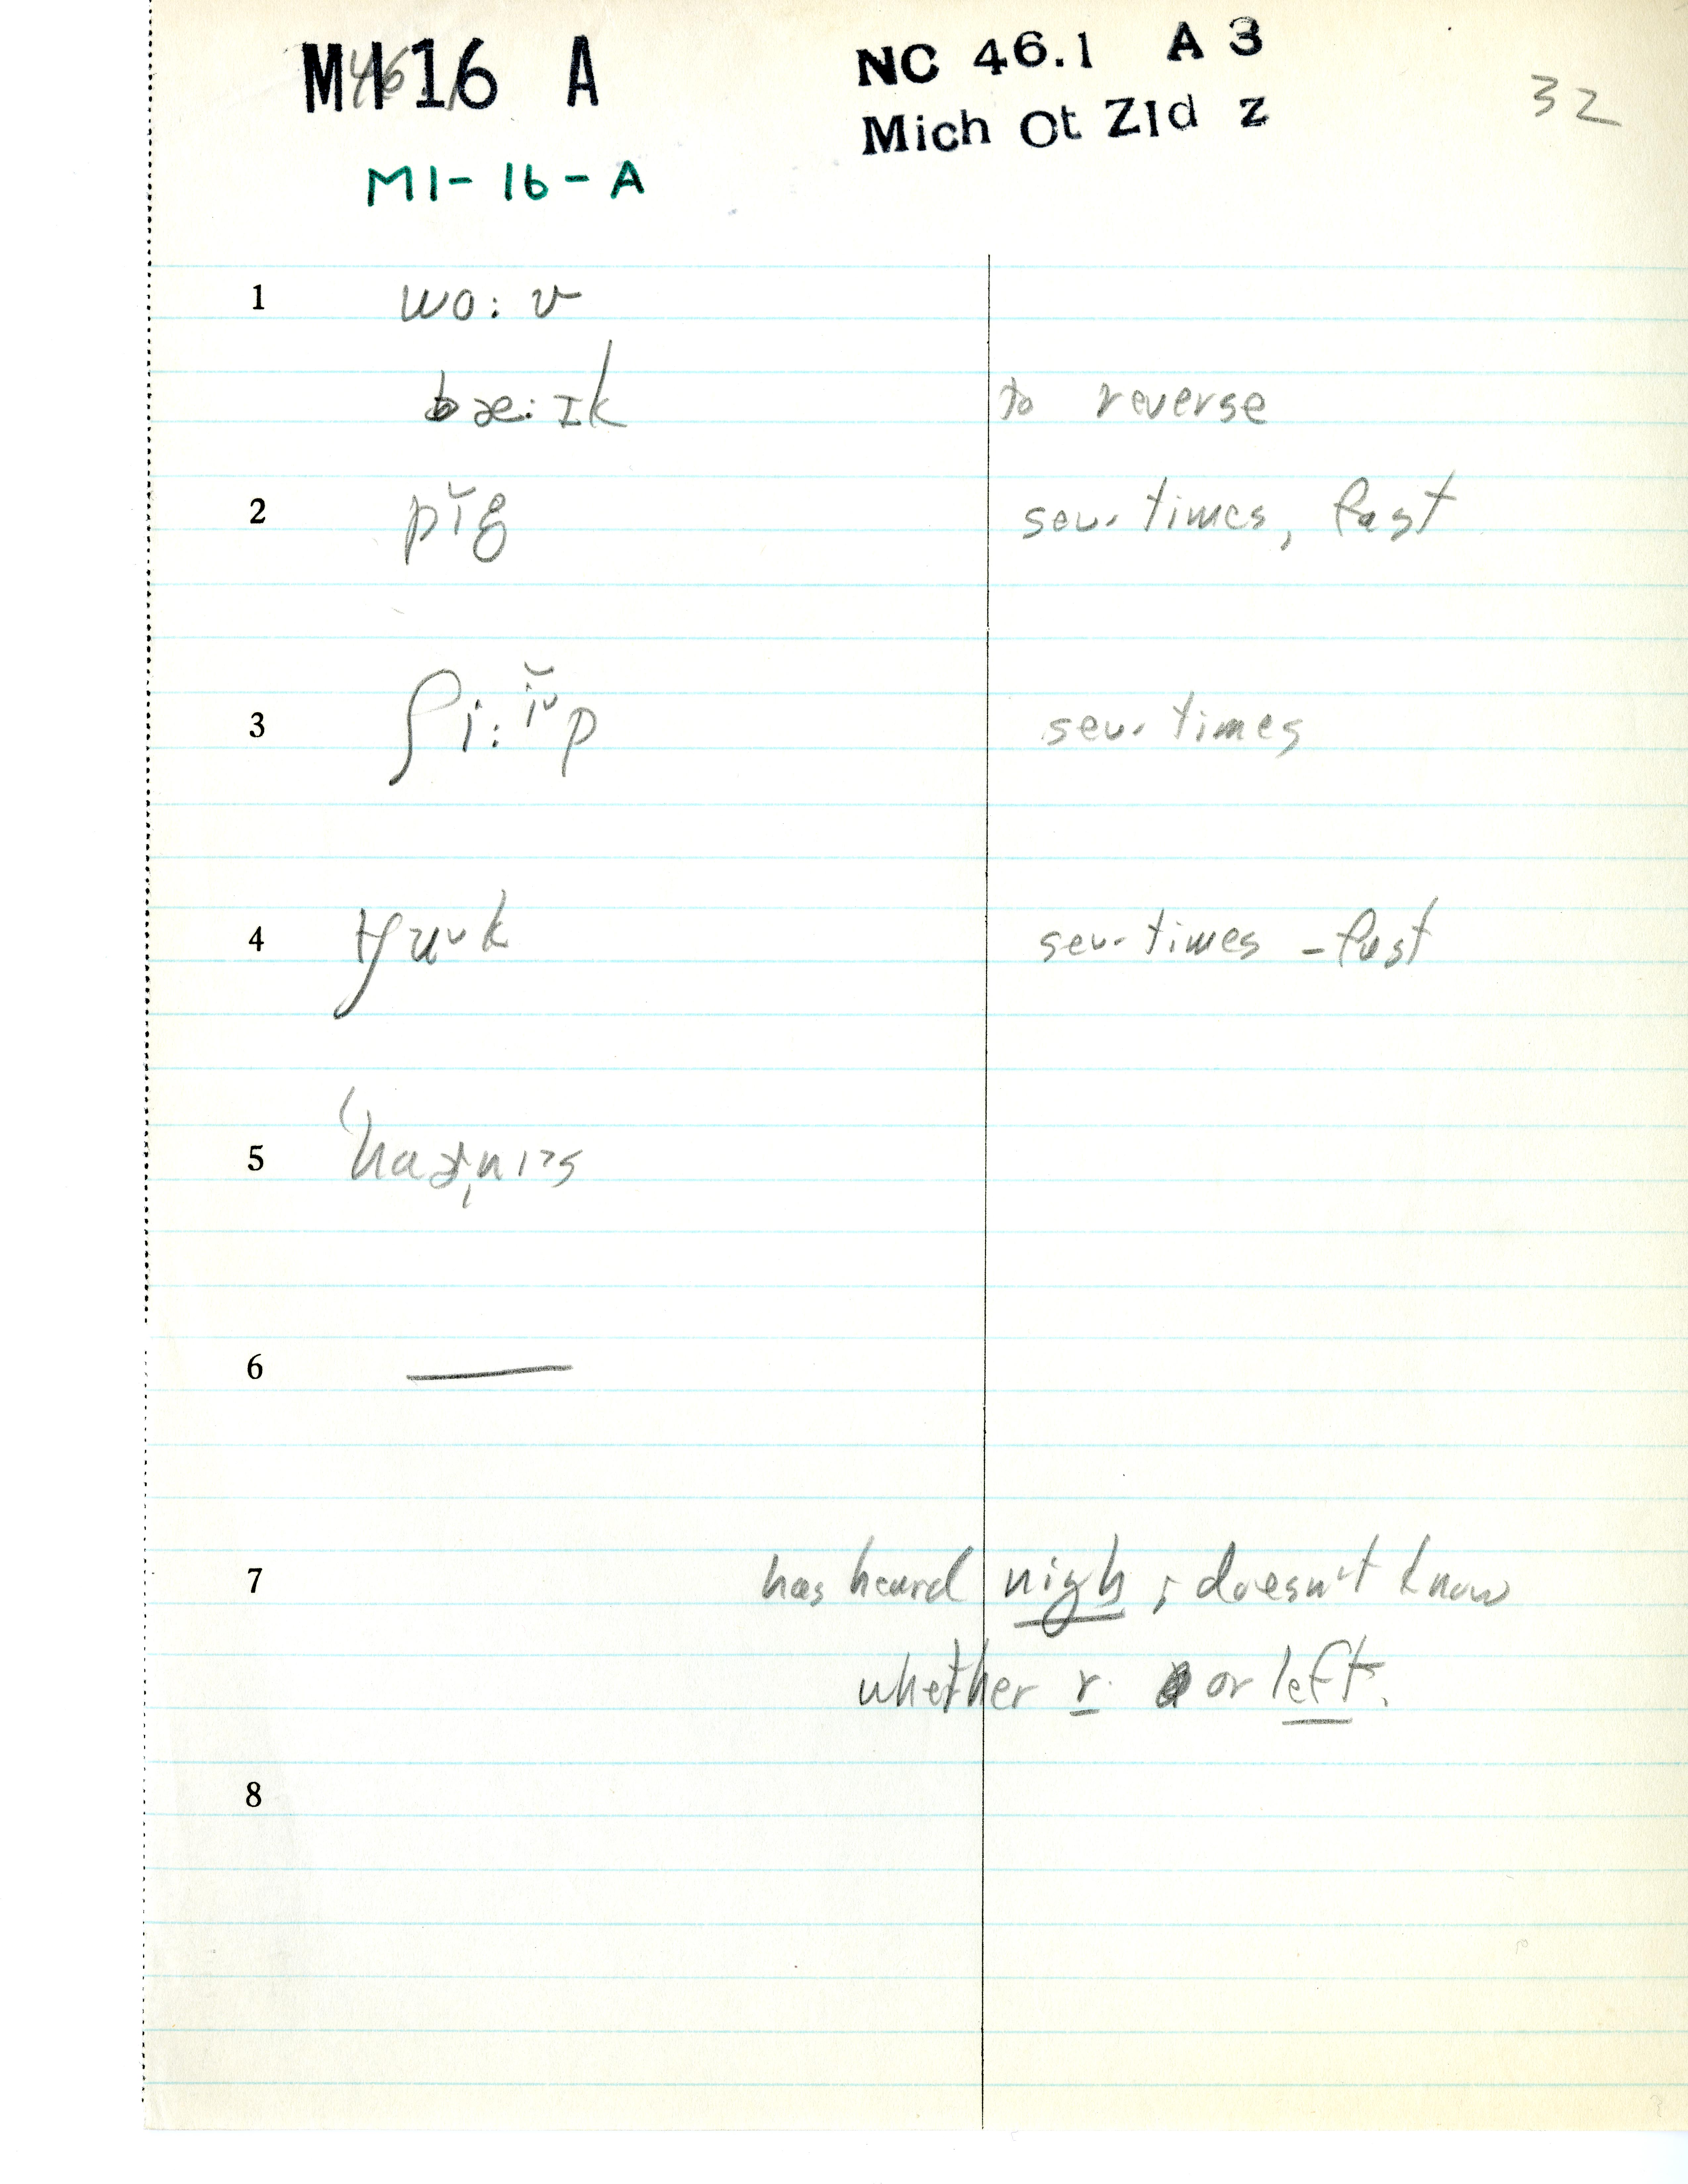 MI 16 A
NC 46.1 A 3
Mich Ot Zld z
32
MI-16-A
1 wo: ʊ
bæ:ɪk to reverse
2 pĭg sev. times, fast
3 ʃi:ĭᵛp sev. times
4 tʃuᵛk sev. times - fast
5
6 —
7 has heard nigh ; doesn't know
whether r. or left.
8